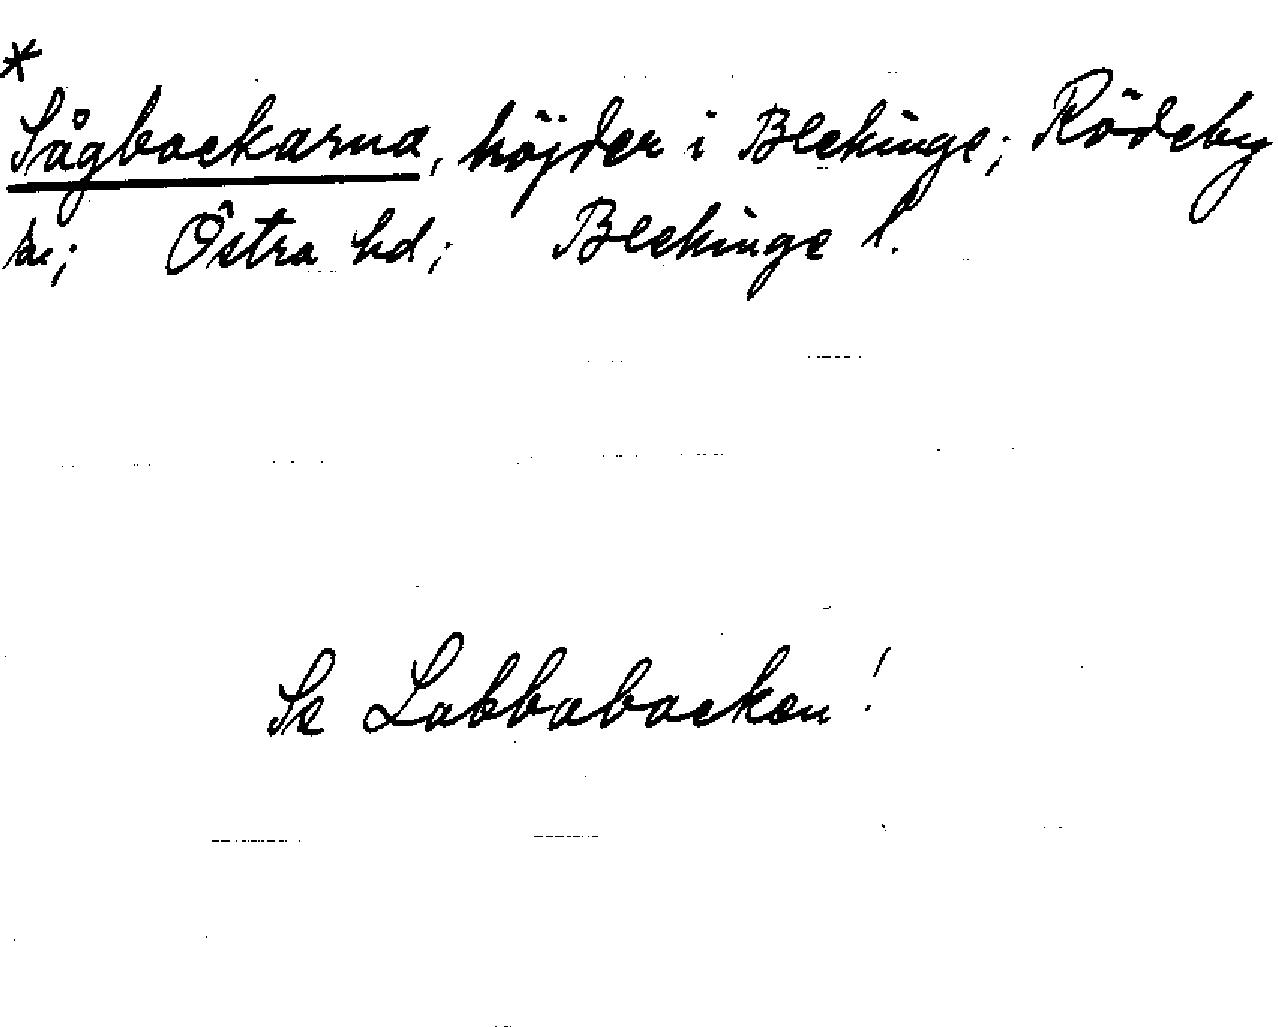 *
Sågbackarna, höjder i Blekinge; Rödeby
sn; Östra hd; Blekinge l.
Se Labbabacken!